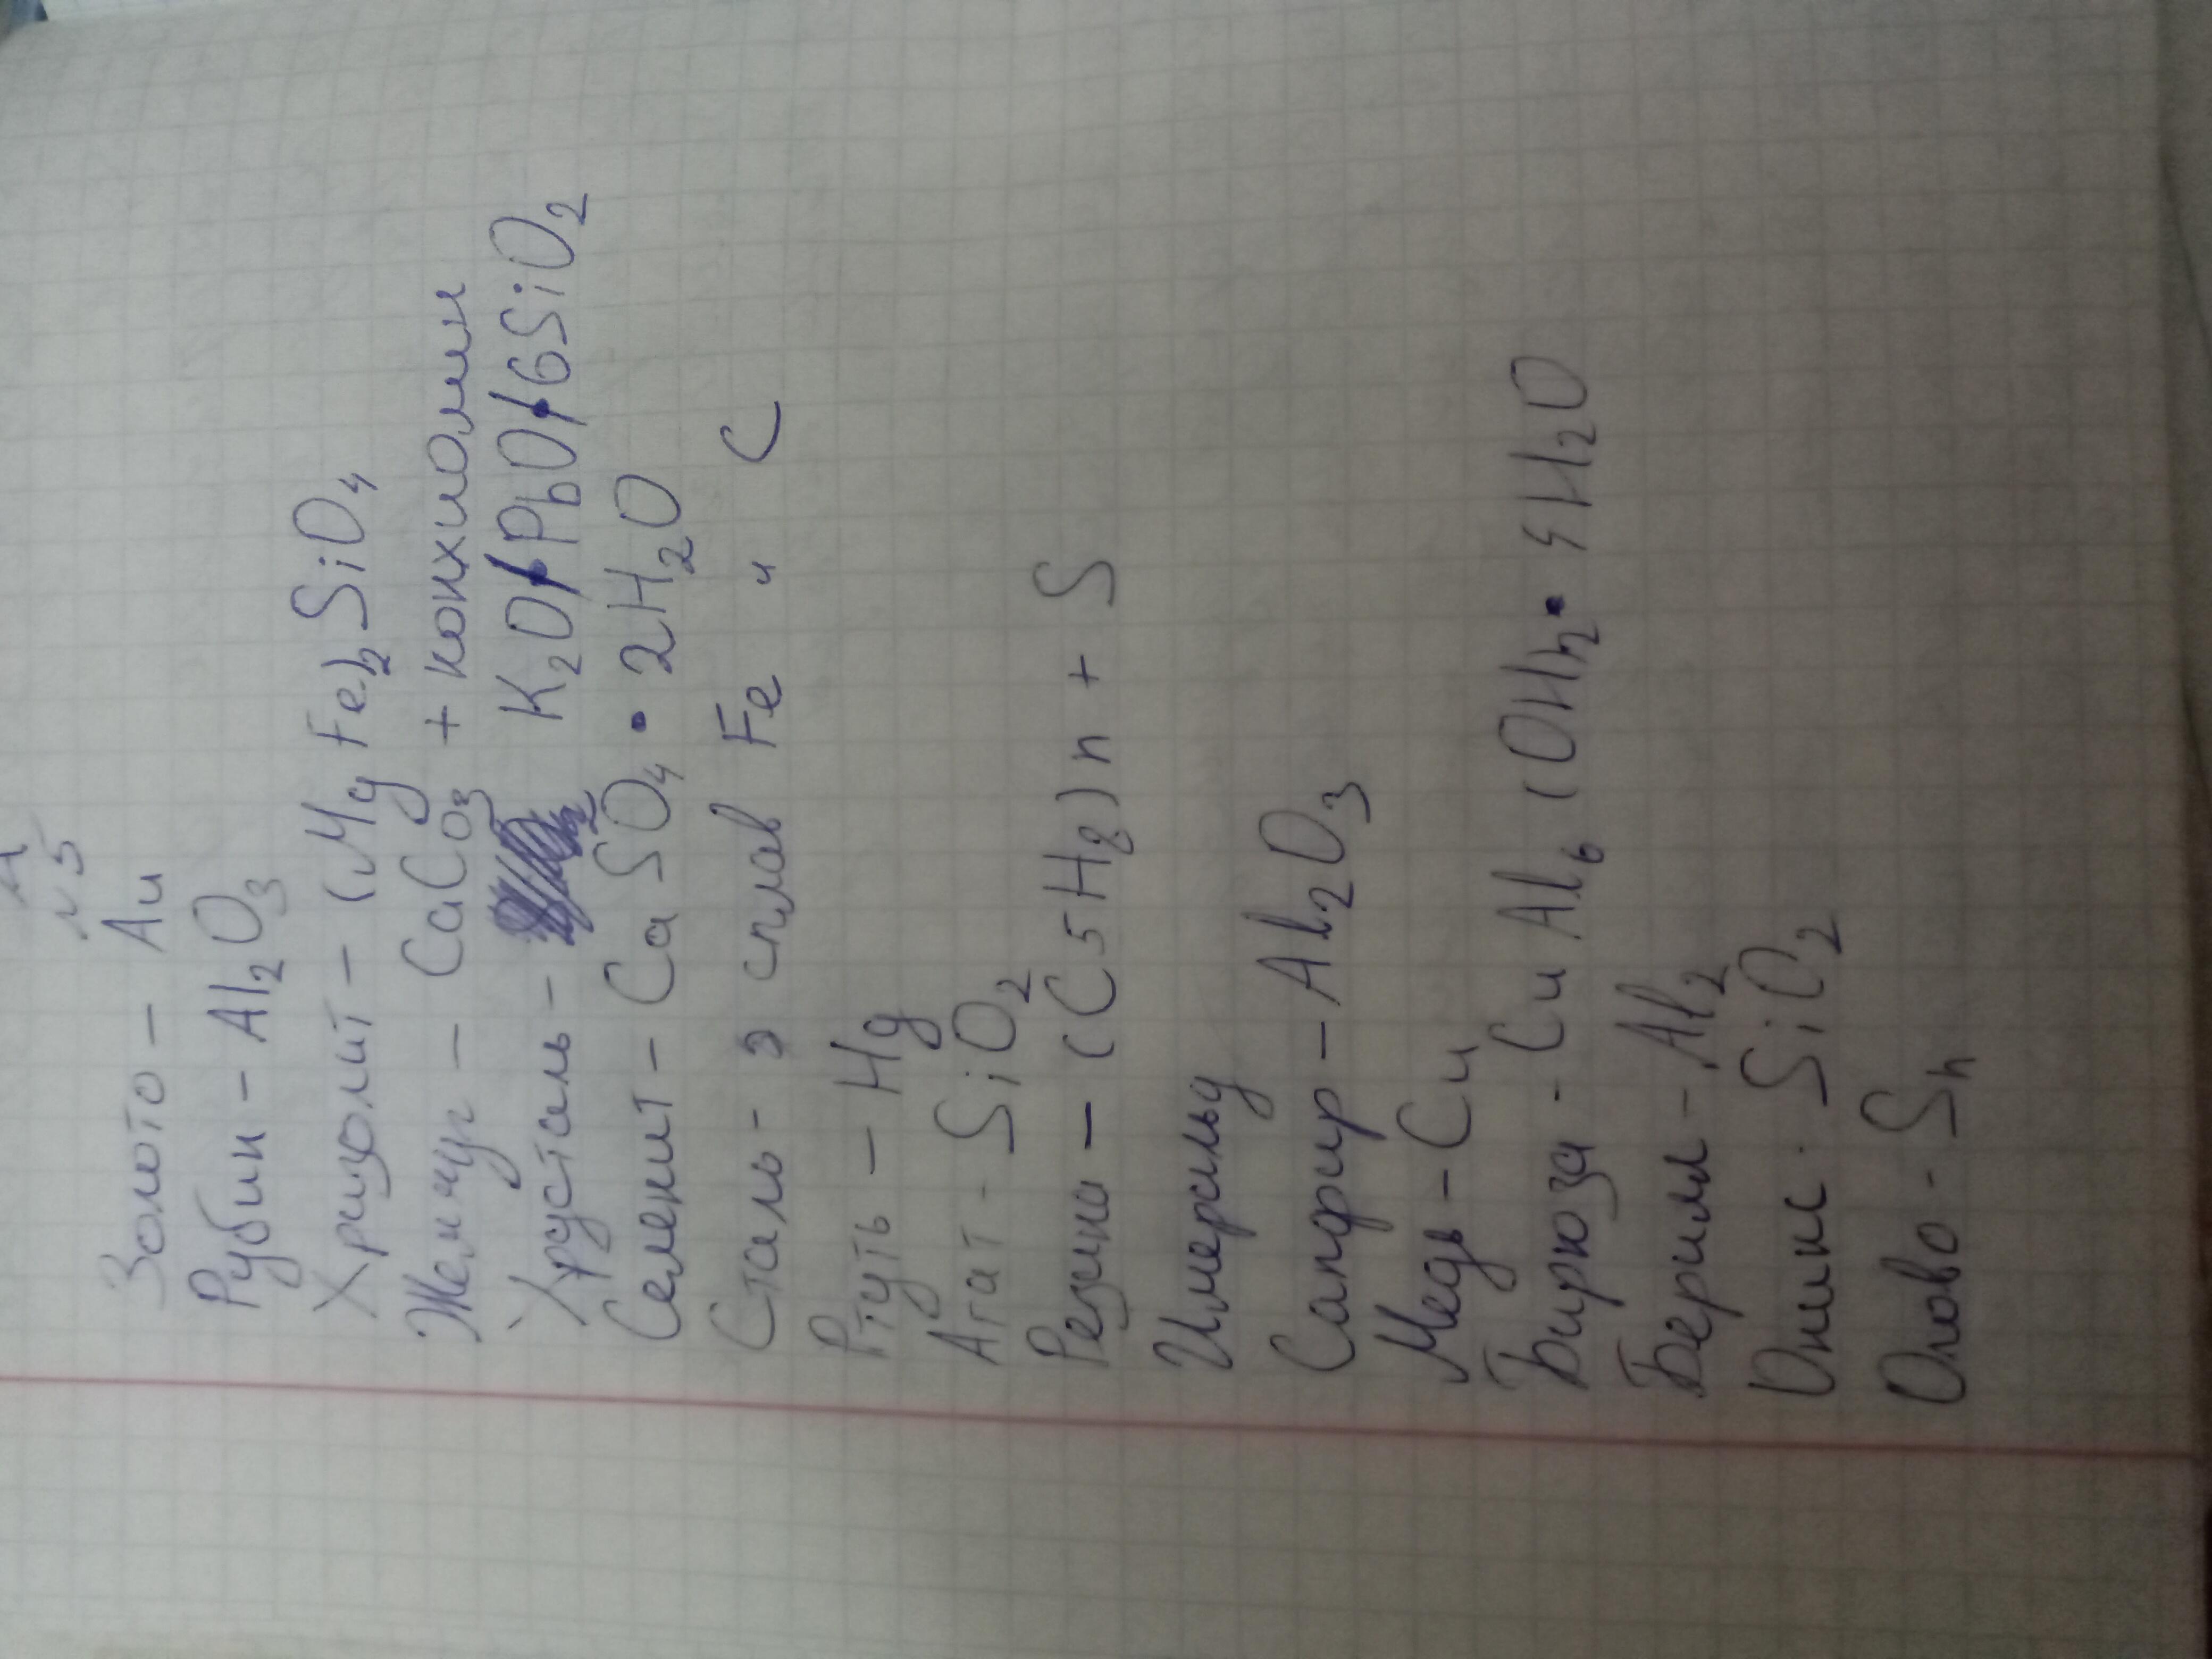 №5
Золото - Au
Рубин - Al2O3
Хризолит - (Mg Fe)2 SiO4
Жемчуг - CaCO3 + конхиолин
Хрусталь - K2O • PbO • 6SiO2
Селенит - CaSO4 • 2H2O
Сталь - э сплав Fe и C
Ртуть - Hg
Агат - SiO2
Резина - (C5H8)n + S
Имеральд
Сапфир - Al2O3
Медь - Cu
Бирюза - CuAl6 (OH)2 • 4H2O
Берилл - Al2
Оникс - SiO2
Олово - Sn